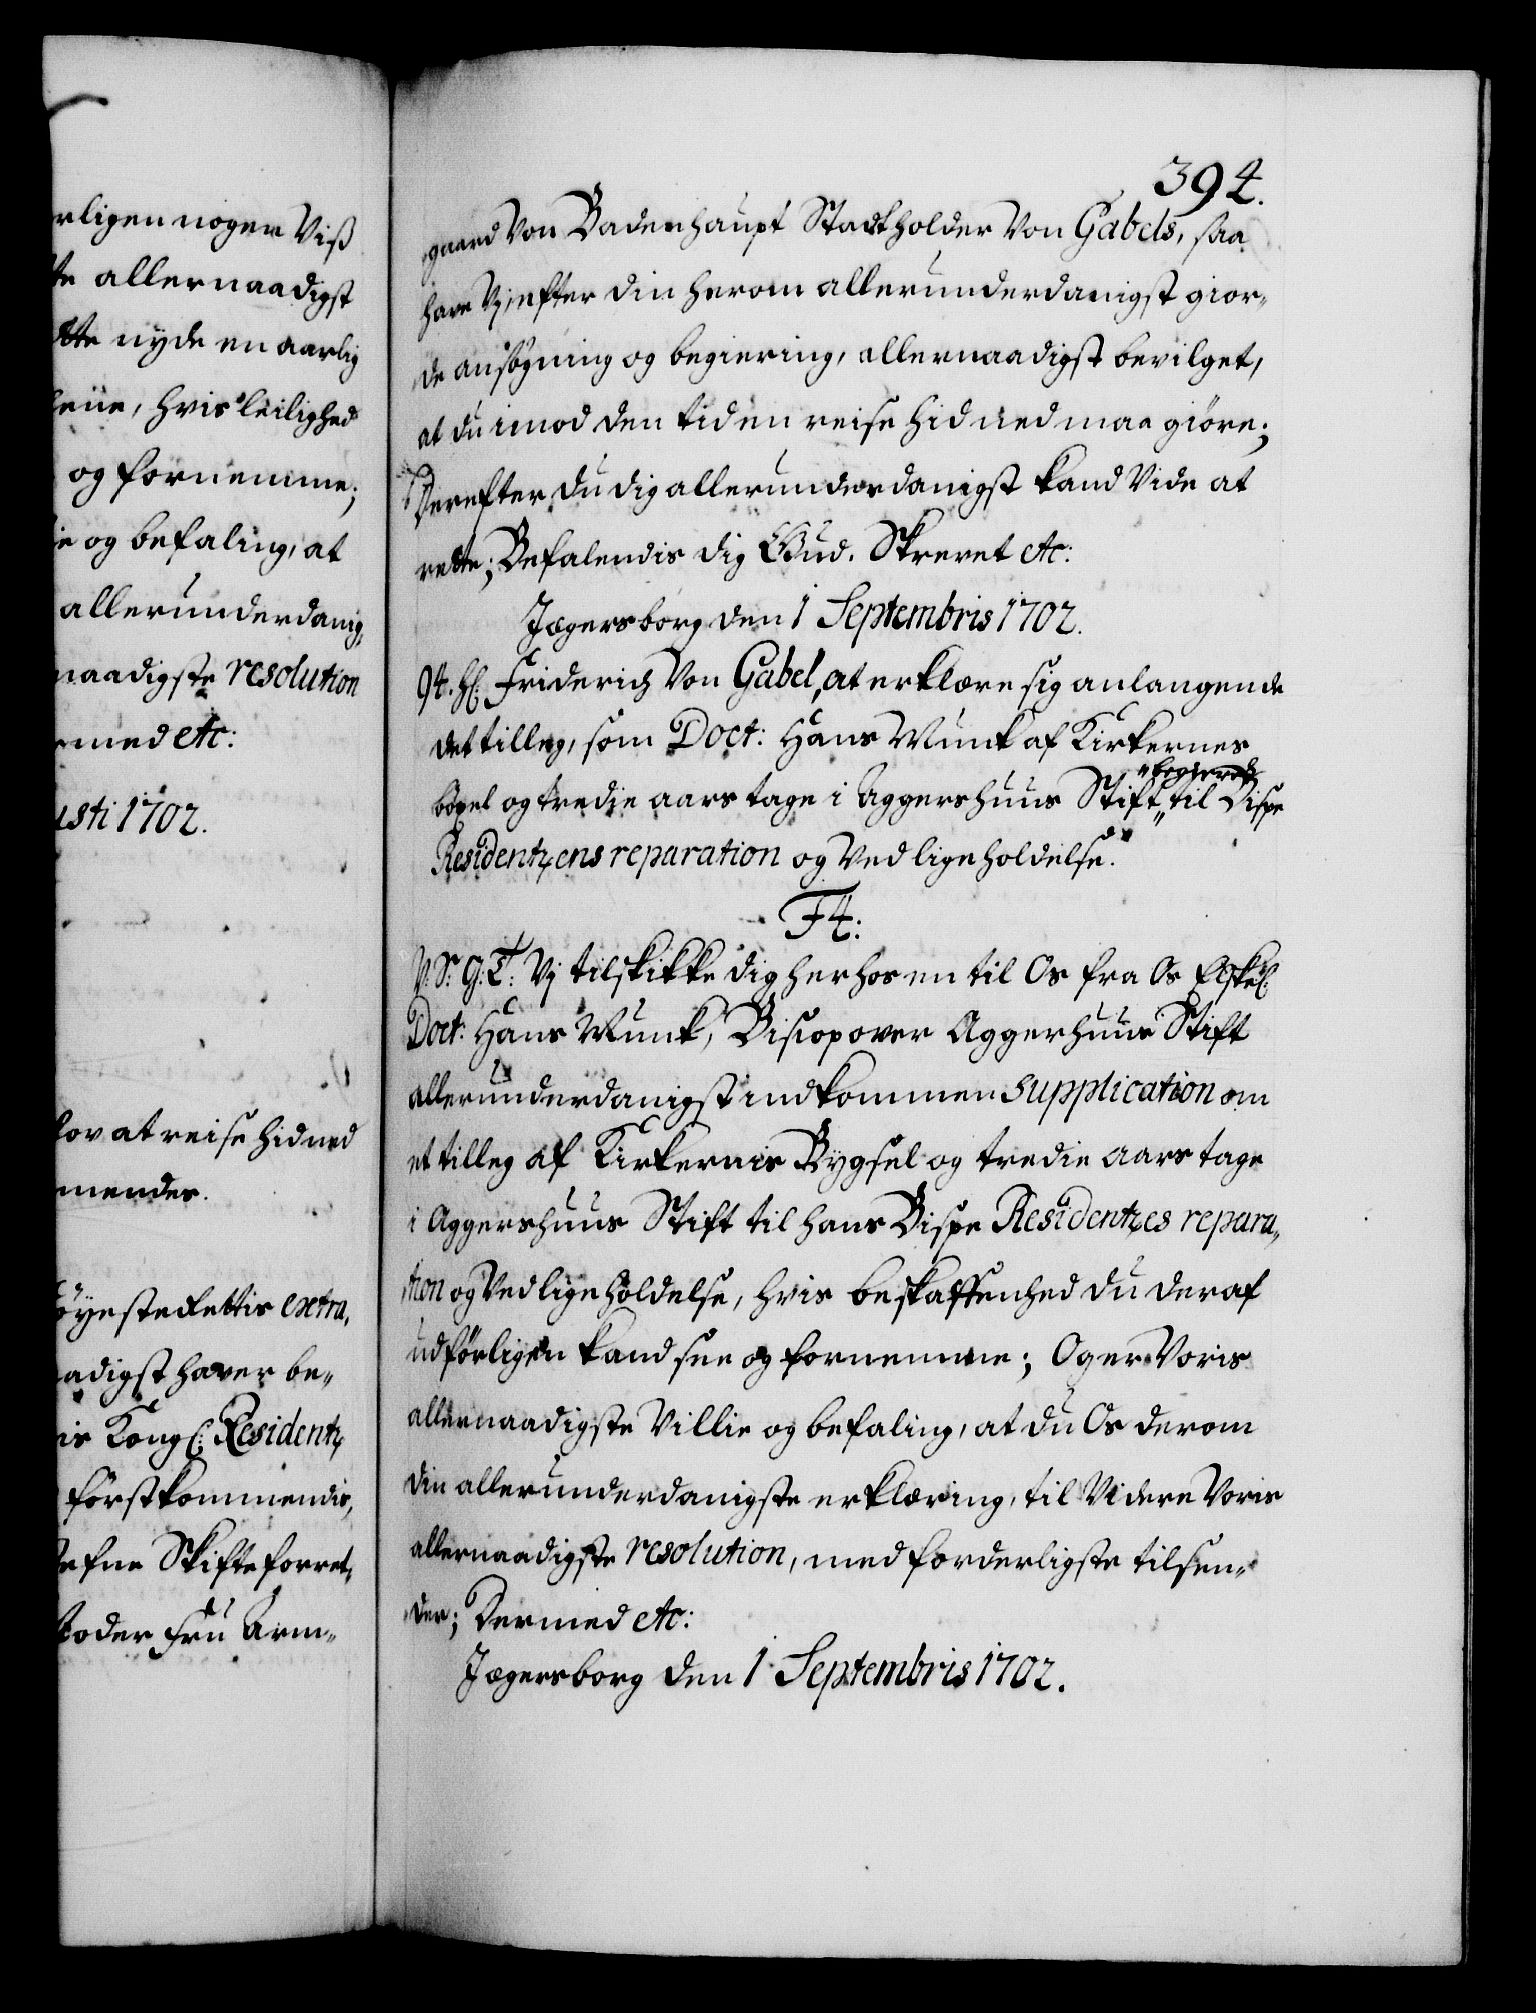 rligen nogen Viß
te allernaadigst
tte nyde en aarlig
heüe, hvis leilighed
og fornemme;
ie og befaling, at
allerunderdanig,
naadigste resolution
med etc:
usti 1702.
lov at reise hid ned
mendes.
öyesteRettis extra,
aadigst haver be„
is Kongl: Residentz
förstkommendis,
efne Skifteforret,
oder Fru Arm„
394.
gaard Von Badenhaupt Stadtholder Von Gabels, saa
have Vj, efter din herom allerunderdanigst gior„
de ansögning og begiering, allernaadigst bevilget,
at du imod den tid en reise hid ned maa giöre;
Derefter du dig allerunderdanigst kand Vide at
rette; Befalendis dig Gud. Skrevet etc:
Jægersborg den 1 Septembris 1702.
94. Hl: Friderich Von Gabel, at erklære sig anlangende
det tilleg, som Doct: Hans Munk af Kirkernes
böxel og tredie aars tage i Aggershuus Stift „begierede til Bispe
Residentzens reparation og Vedligeholdelse.
F4:
V: S: G: T: Vj tilskikke dig herhos en til Os fra Os Elskel:
Doct: Hans Munk, Biscop over Aggerhuus Stift
allerunderdanigst indkommen supplication om
et tilleg af Kirkernis Bygsel og tredie aars tage
i Aggershuus Stift til hans Bispe Residentzes repara„
tion og Vedligeholdelse, hvis beskaffenhed du deraf
udförligen kand see og fornemme; Og er Voris
allernaadigste Villie og befaling, at du Os derom
din allerunderdanigste erklæring, til Videre Voris
allernaadigste resolution, med forderligste tilsen„
der; Dermed etc:
Jægersborg den 1 Septembris 1702.